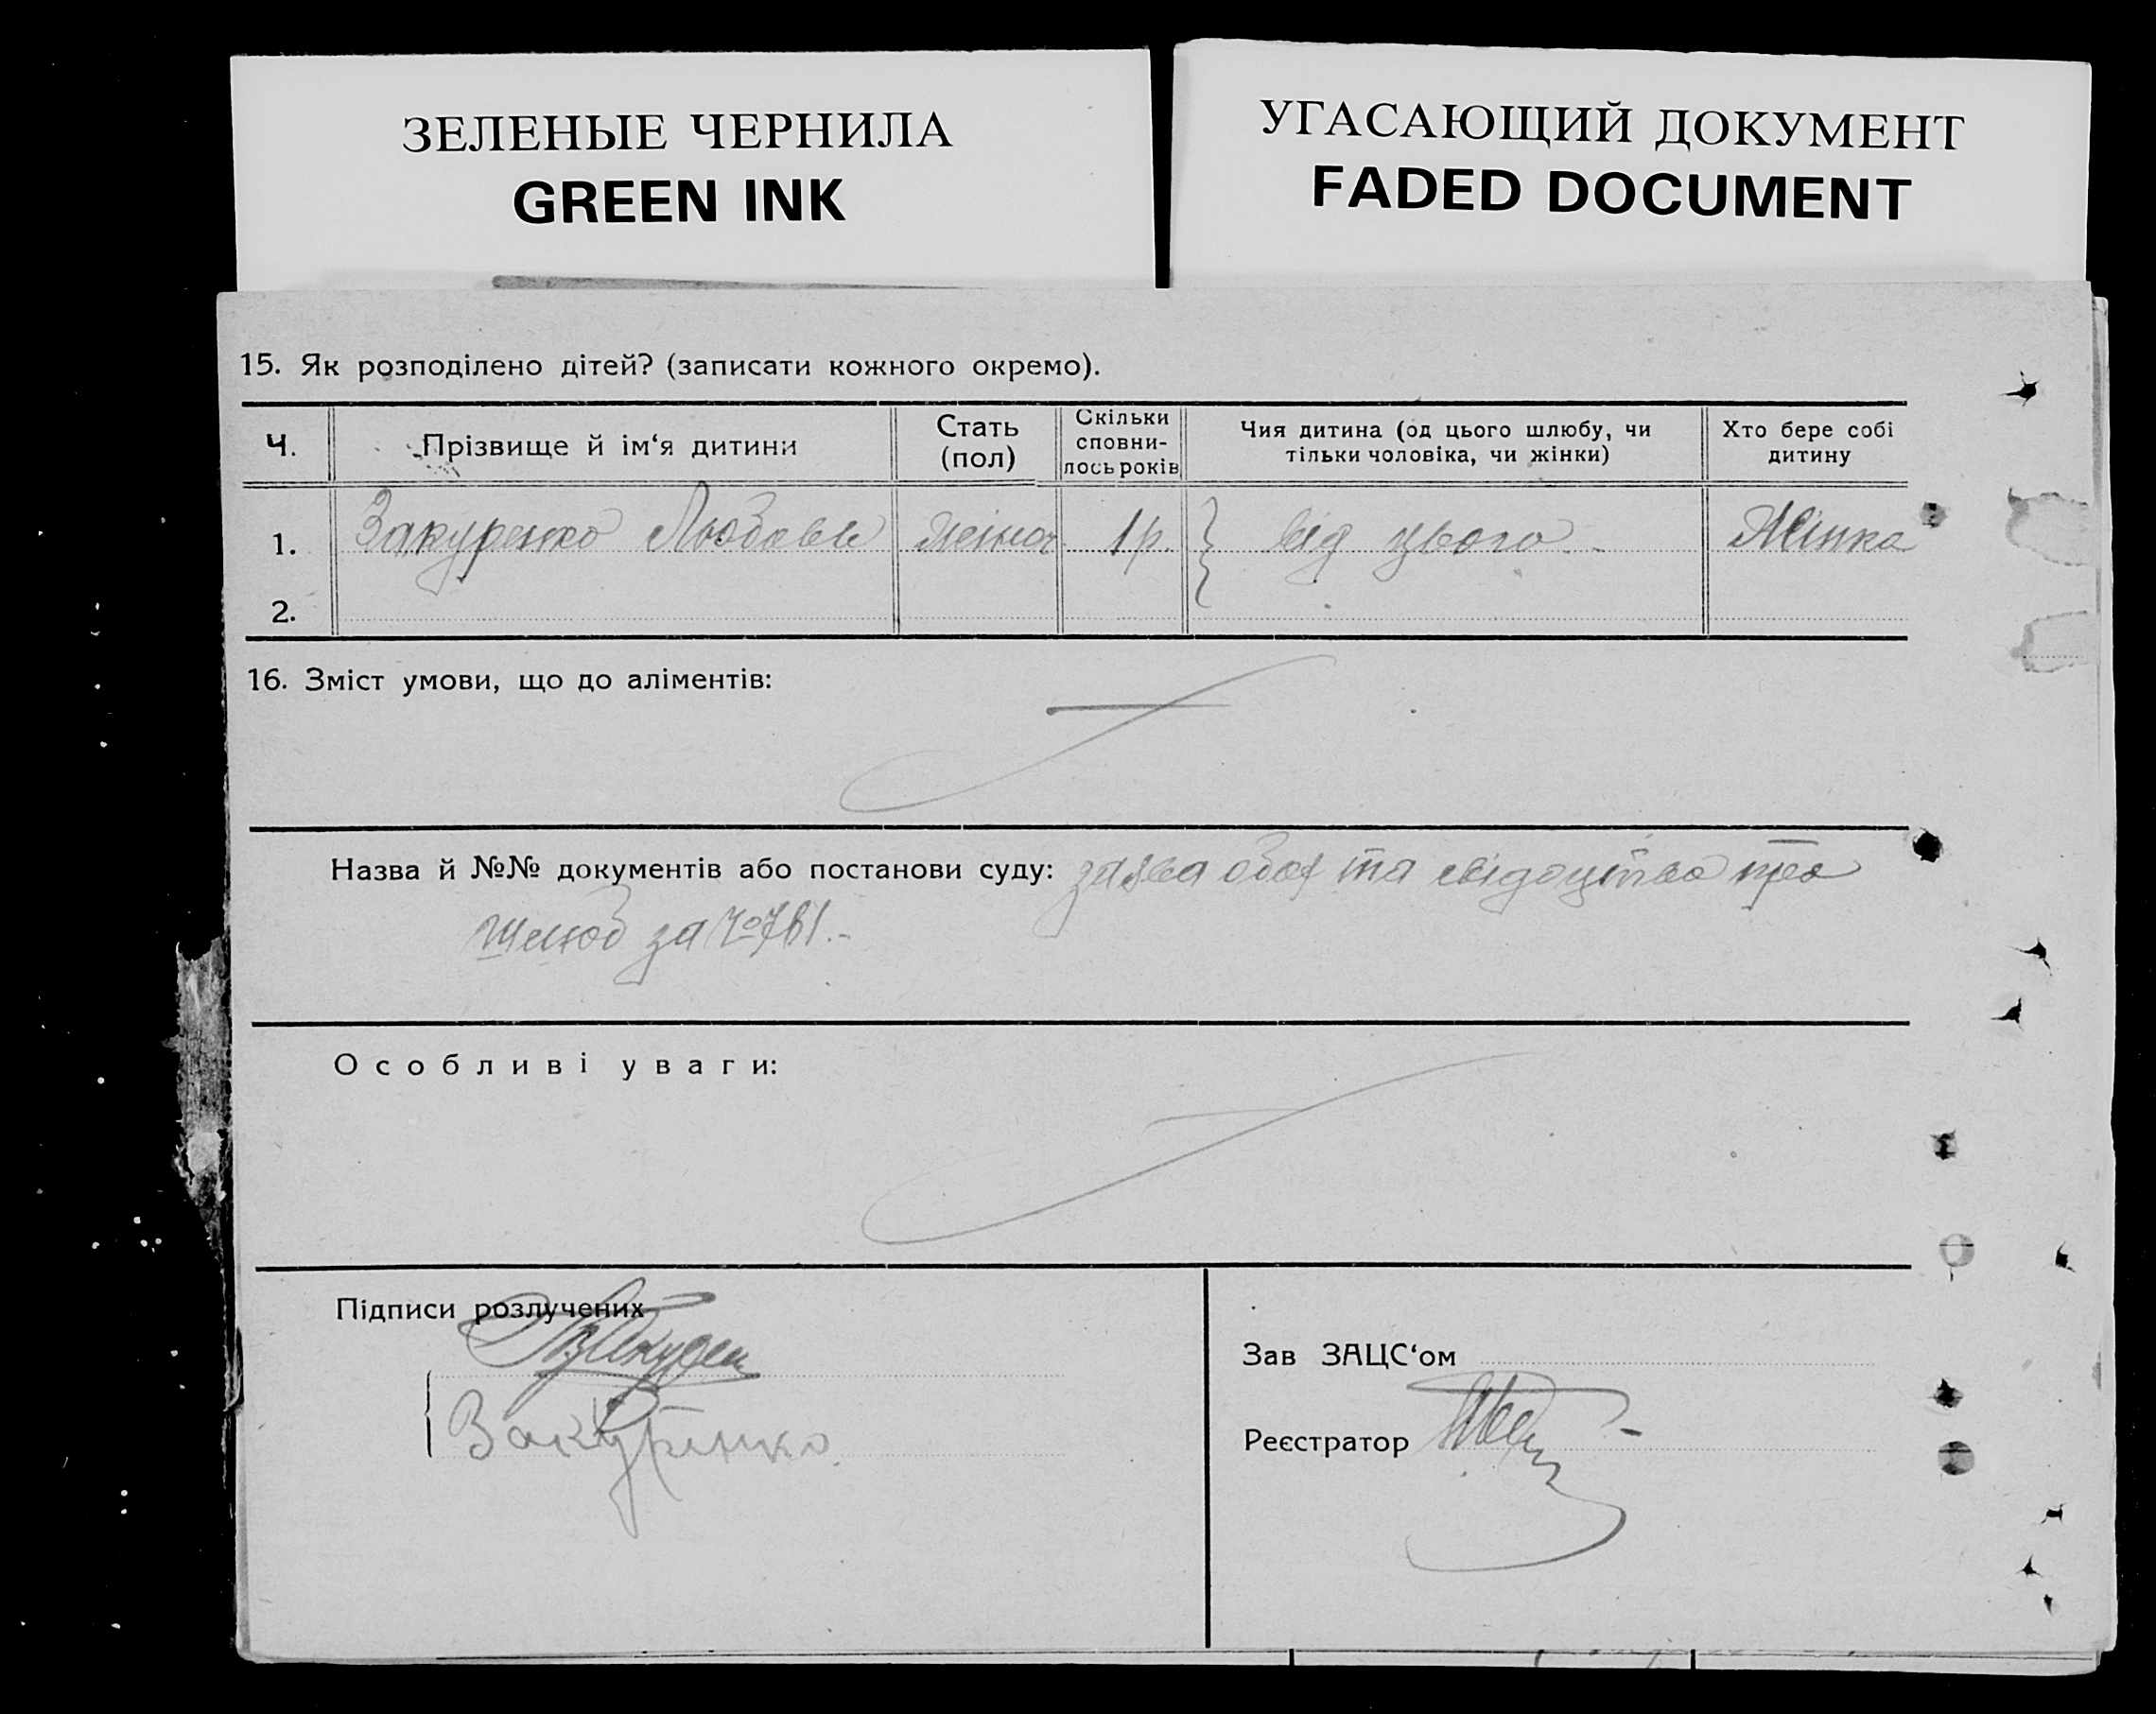 ЗЕЛЕНЫЕ ЧЕРНИЛА
GREEN INK
УГАСАЮЩИЙ ДОКУМЕНТ
FADED DOCUMENT
15. Як розподілено дітей? (записати кожного окремо).
Ч.
Прізвище й ім‘я дитини
Стать
(пол)
Скільки
сповни-
лось років
Чия дитина (од цього шлюбу, чи
тільки чоловіка, чи жінки)
Хто бере собі
дитину
1. Закуренко Любовь жіноч 1 р. від цього Жінка
2.
16. Зміст умови, що до аліментів:
Назва й №№ документів або постанови суду: заява обох та свідоцтво про
шлюб за №
Особливі уваги:
Підписи розлучених
Закуренко
Зав ЗАЦС‘ом
Реєстратор